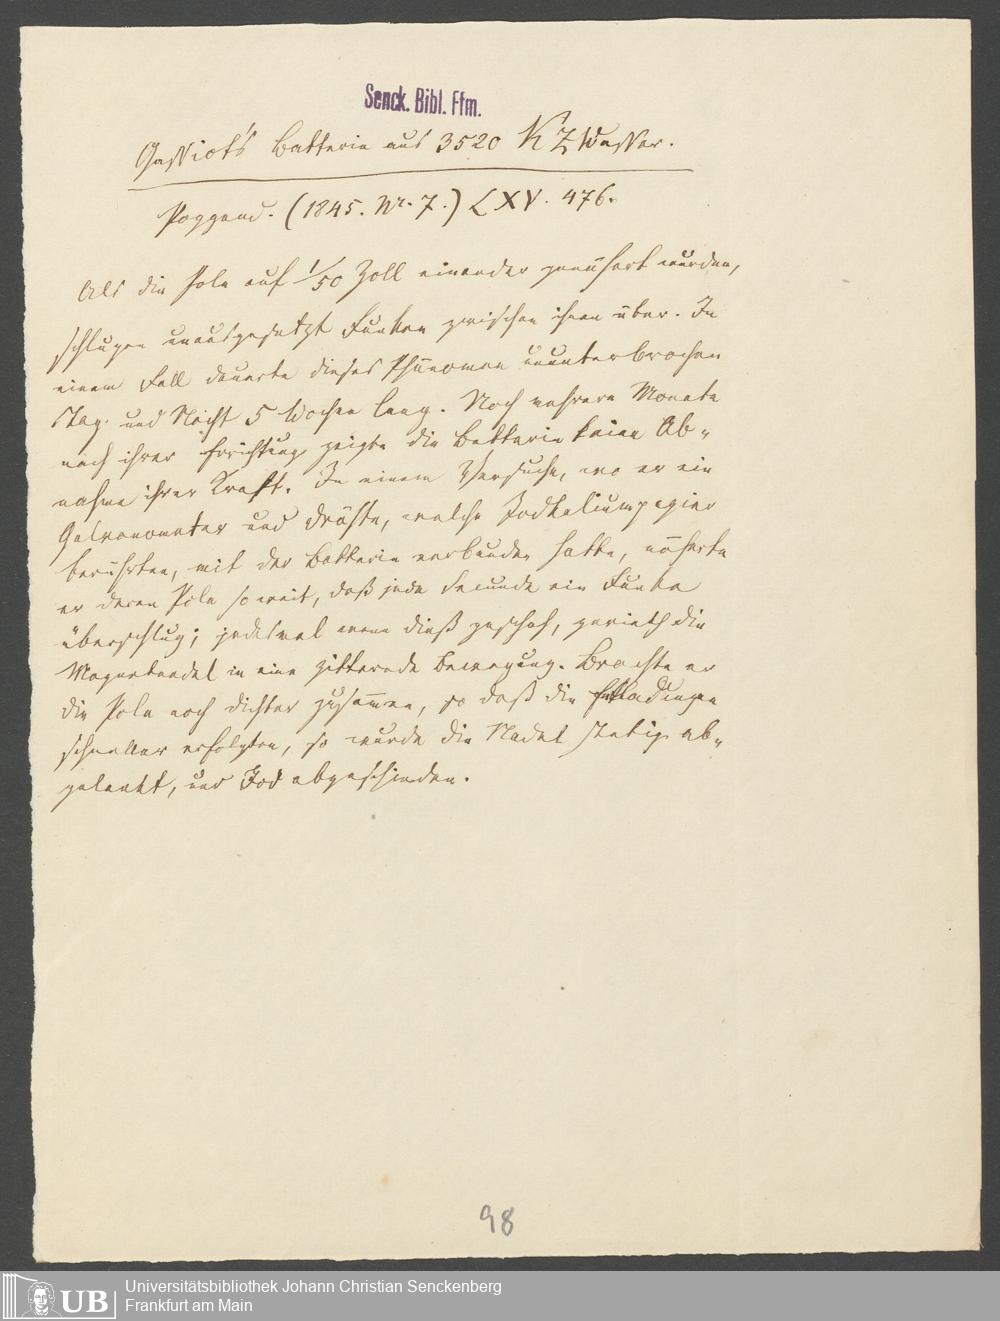 Senck. Bibl. Ffm.
Gassiot's Batterie aus 3520 K Z Wasser.
Poggend. (1845. Nr. 7.) LXV. 476.
Als die Pole auf 1/50 Zoll einander genähert wurden,
schlugen unausgesetzt Funken zwischen ihnen über. In
einem Fall dauerte dieses Phänomen ununterbrochen
Tag und Nacht 5 Wochen lang. Noch mehrere Monate
nach ihrer Errichtung zeigte die Batterie keine Ab-
nahme ihrer Kraft. In einem Versuche, wo er ein
Galvanometer und Dräthe, welche Jodkaliumpapier
berührten, mit der Batterie verbunden hatte, näherte
er deren Pole so weit, daß jede Secunde ein Funke
überschlug; jedesmal wenn dieß geschah, gerieth die
Magnetnadel in eine zitternde Bewegung. Brachte er
die Pole noch dichter zusammen, so daß die Entladungen
schneller erfolgten, so wurde die Nadel stetig ab-
gelenkt, und Jod abgeschieden.
98
UB
Universitätsbibliothek Johann Christian Senckenberg
Frankfurt am Main